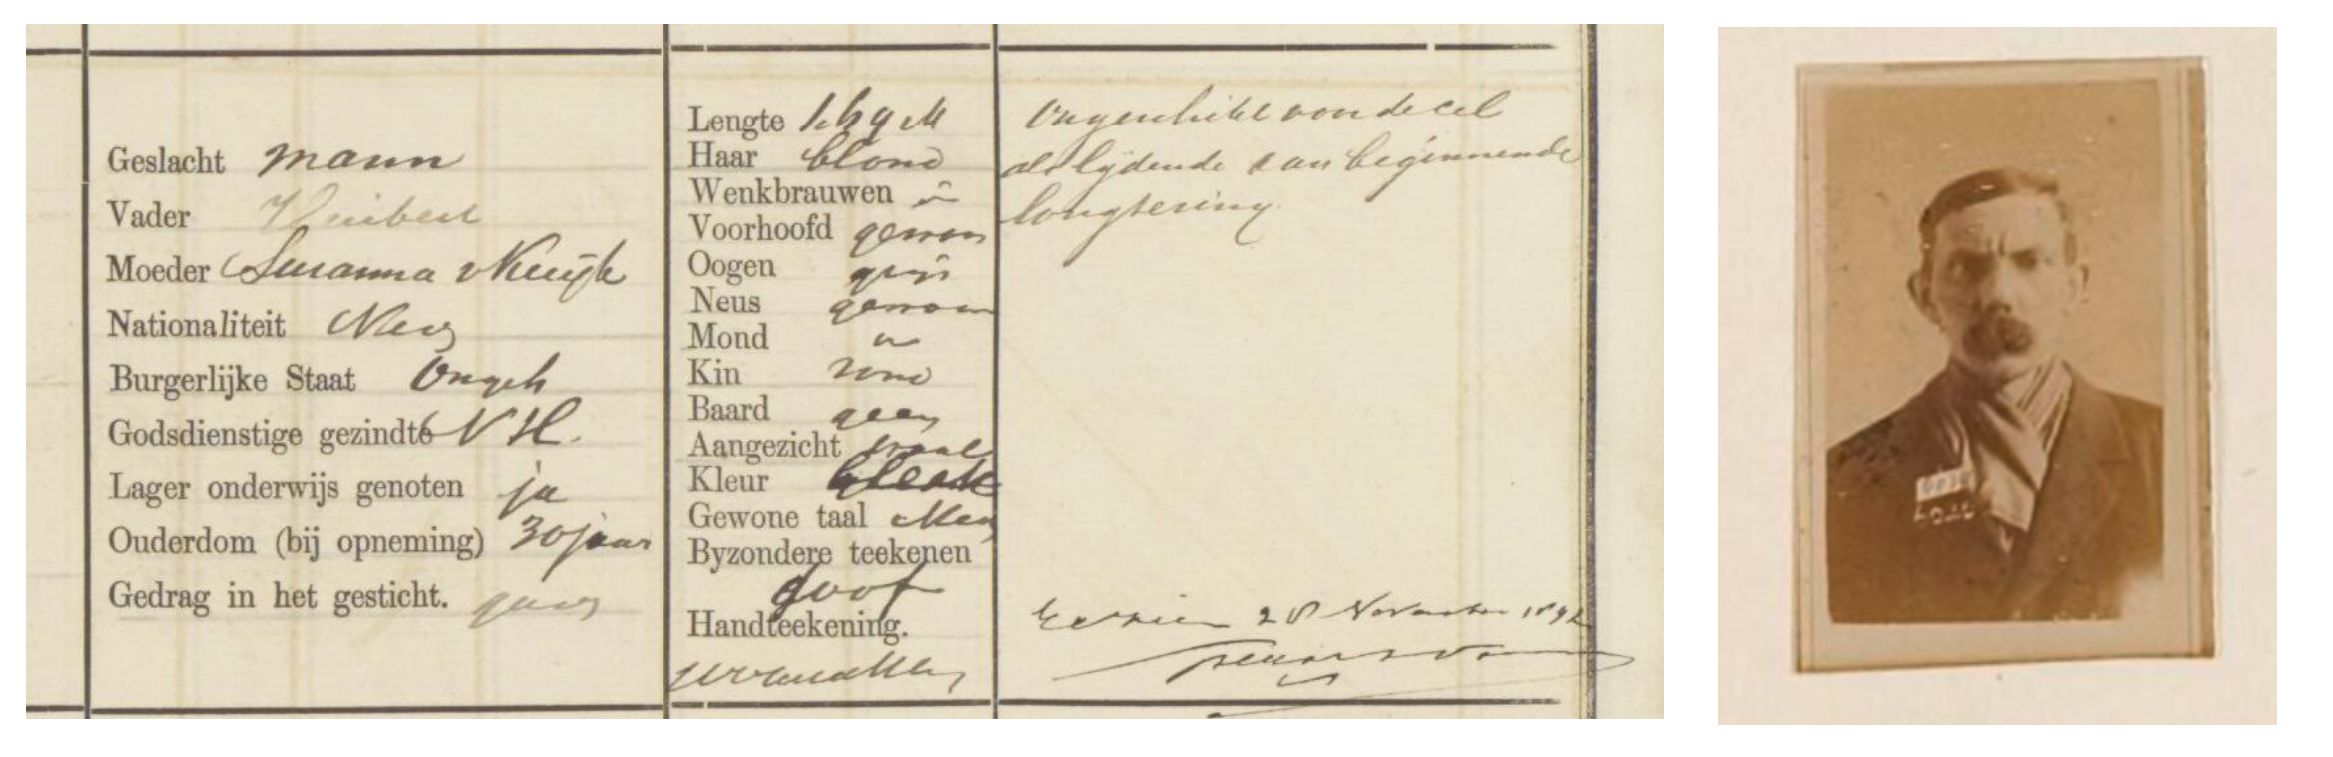 Geslacht mann
Vader Huibert
Moeder Susanna v Kuijk
Nationaliteit Ned
Burgerlijke Staat Ongeh
Godsdienstige gezindte N H.
Lager onderwijs genoten ja
Ouderdom (bij opneming) 30 jaar
Gedrag in het gesticht. goed
Lengte 1.69 M
Haar blond
Wenkbrauwen "
Voorhoofd gewoon
Oogen grijs
Neus gewoon
Mond "
Kin rond
Baard geen
Aangezicht ovaal
Kleur bleek
Gewone taal Ned
Byzondere teekenen
doof
Handteekening.
Ongeschikt voor de cel
als lijdende aan beginnende
longtering.
28 November 1892